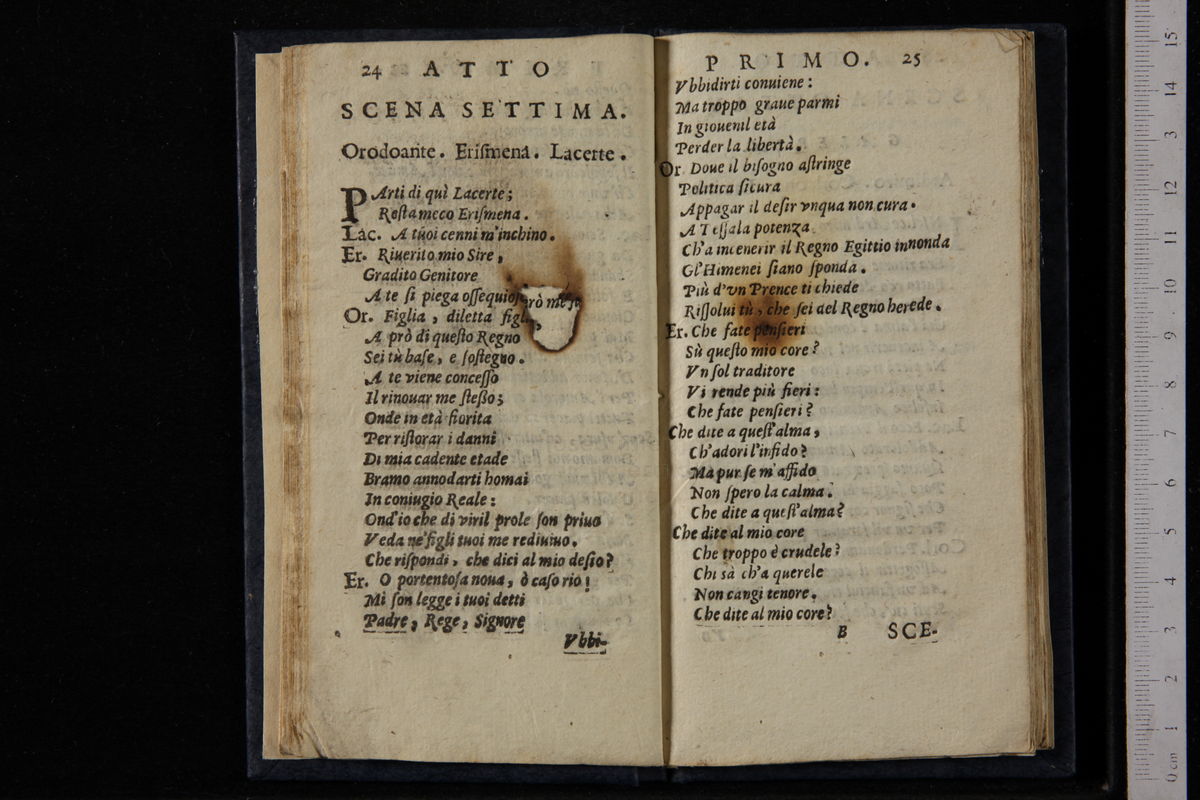 24 ATTO
SCENA SETTIMA.
Orodoante. Eriſmena. Lacerte.
PArti di quì Lacerte;
Reſta meco Eriſmena.
Lac. A tuoi cenni m'inchino.
Er. Riuerito mio Sire,
Gradito Genitore
A te ſi piega
Or. Figlia, diletta
A prò di queſto Regno
Sei tù baſe, e ſoſtegno.
A te viene conceſſo
Il rinouar me ſteßo;
Onde in età fiorita
Per riſtorar i danni
Di mia cadente etade
Bramo annodarti homai
In coniugio Reale:
Ond'io che di viril prole ſon priuo
Veda ne'figli tuoi me rediuiuo.
Che riſpondi, che dici al mio deſio?
Er. O portentoſa noua, ò caſo rio!
Mi ſon legge i tuoi detti
Padre, Rege, Signore
Vbbi-
PRIMO. 25
Vbbidirti conuiene:
Ma troppo graue parmi
In giouenil età
Perder la libertà.
Or. Doue il biſogno aſtringe
Politica ſicura
Appagar il deſir vnqua non cura.
A Teſſala potenza
Ch'a incenerir il Regno Egittio innonda
Gl'Himenei ſiano ſponda.
Più d'vn Prence ti chiede
Riſſolui tù, che ſei del Regno herede.
Er. Che fate penſieri
Sù queſto mio core?
Vn ſol traditore
Vi rende più fieri:
Che fate penſieri?
Che dite a queſt'alma,
Ch'adori l'infido?
Ma pur ſe m'affido
Non ſpero la calma.
Che dite a queſt'alma?
Che dite al mio core
Che troppo è crudele?
Chi sà ch'a querele
Non cangi tenore.
Che dite al mio core?
B SCE-